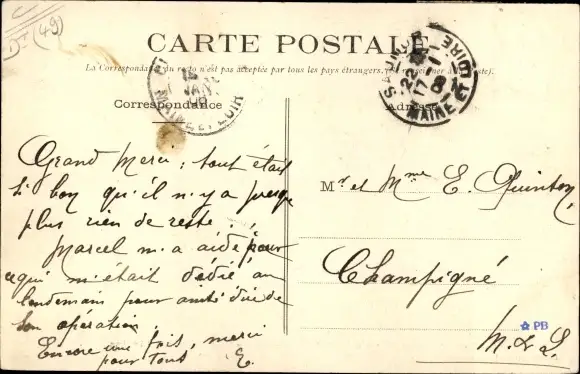 Dt (49)
CARTE POSTALE
La Correspondance du recto n'est pas acceptée par tous les pays étrangers. (Se renseigner à la Poste).
Correspondance
Adresse
14 JANV 08
MAINE ET LOIRE
SAUMUR
MAINE ET LOIRE
Grand merci ; tout était
si bon qu'il n'y a presque
plus rien de reste.
Marcel m'a aidé pour
ce qui m'était dédié au
lendemain pour
son opération
Encore une fois, merci
pour tous E.
Mr et Mme E. Quinton,
Champigné
M. & L.
PB